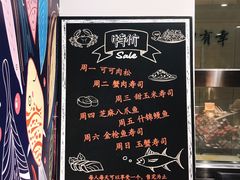 特价
Sale
周一 可可肉松
周二 蟹肉寿司
周三 甜玉米寿司
周四 芝麻八爪鱼
周五 什锦鳗鱼
周六 金枪鱼寿司
周日 玉蟹寿司
有幸